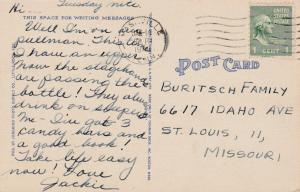 Tuesday nite
Hi...
THIS SPACE FOR WRITING MESSAGES
Well I'm on
pullman. This time
I have an upper.
Now the stagehands
are passing the
bottle! They also
drink on
me - I've got 3
candy bars and
a good book!
Take life easy
now! Love
Jackie
POST CARD
1 CENT 1
BURITSCH FAMILY
6617 IDAHO AVE
ST. LOUIS, 11,
MISSOURI